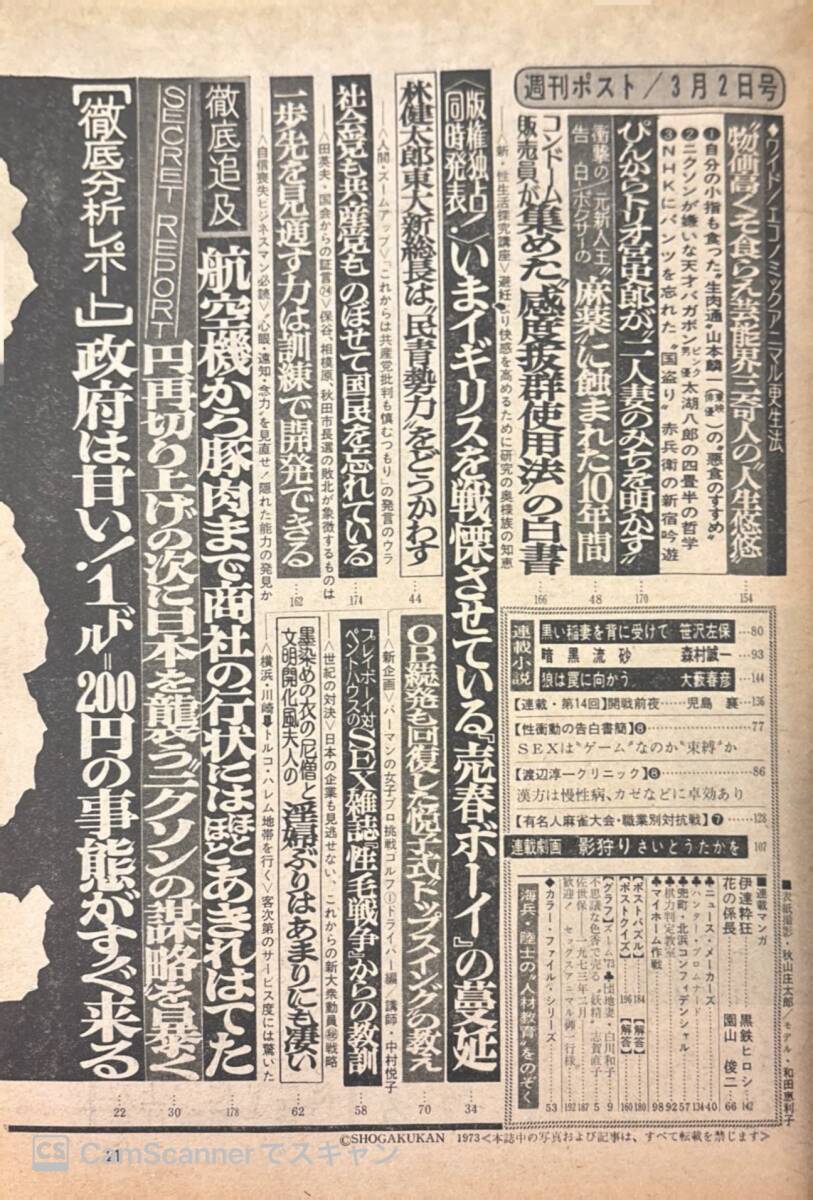 週刊ポスト／3月2日号
◆ワイド／エコノミックアニマル更生法
“物価高くそ食らえ芸能界三奇人の“人生悠悠”
❶自分の小指も食った“生肉通”山本麟一(東映俳優)の“悪食のすすめ”
❷ニクソンが嫌いな天才バガボン(ピンク男優)太湖八郎の四畳半の哲学
❸NHKにパンツを忘れた“国盗り”赤兵衛の新宿吟遊
154
ぴんからトリオ宮史郎が“二人妻のみちを明かす”
170
衝撃の告白 “元新人王”ボクサーの “麻薬”に蝕まれた10年間
48
コンドーム販売員が集めた“感度抜群使用法”の白書
166
―〈新・性生活探究講座〉避妊より快感を高めるために研究の奥様族の知恵
〈版権独占／同時発表〉いまイギリスを戦慄させている『売春ボーイ』の蔓延
34
林健太郎東大新総長は“民青勢力”をどうかわす
44
―〈人間・ズームアップ〉「これからは共産党批判も慎むつもり」の発言のウラ
社会党も共産党ものぼせて国民を忘れている
174
―〈田英夫・国会からの証言㉔〉保谷、相模原、秋田市長選の敗北が象徴するものは
一歩先を見通す力は訓練で開発できる
162
―〈自信喪失ビジネスマン必読〉“心眼・遠知・念力”を見直せ！隠れた能力の発見か
OB続発も回復した悦子式トップスイングの教え
70
―〈新企画〉バーマンの女子プロ挑戦ゴルフ①ドライバー編／講師・中村悦子
プレイボーイ対ペントハウスのSEX雑誌『性毛戦争』からの教訓
58
―〈世紀の対決〉日本の企業も見逃せない、これからの新大衆動員㊙戦略
墨染めの衣の「尼僧」と文明開化風夫人の淫婦ぶりはあまりにも凄い
62
―〈横浜・川崎トルコ・ハレム地帯を行く〉客次第のサービス度には驚いた
徹底追及 航空機から豚肉まで商社の行状にはほとほとあきれはてた
178
SECRET REPORT 円再切り上げの次に日本を襲う“ニクソンの謀略”を暴く
30
【徹底分析レポート】政府は甘い！1ドル＝200円の事態がすぐ来る
22
連載小説
黒い稲妻を背に受けて 笹沢左保…80
暗黒流砂 森村誠一…93
狼は罠に向かう 大藪春彦…144
【連載・第14回】開戦前夜……児島 襄…136
【性衝動の告白書簡】❽ 77
SEXは“ゲーム”なのか“束縛”か
【渡辺淳一クリニック】❽ 86
漢方は慢性病、カゼなどに卓効あり
【有名人麻雀大会・職業別対抗戦】❼…128
連載劇画 影狩り さいとうたかを 107
■連載マンガ
伊達粋狂 黒鉄ヒロシ…142
花の係長 園山俊二…66
♣ニュース・メーカーズ 40
♣ハンター・プロムナード 134
♣兜町・北浜コンフィデンシャル 57
♣棋力判定教室 92
♣マイホーム作戦 98
【ポストパズル】184 【解答】180
【ポストクイズ】196 【解答】160
【グラフ】ズーム'73♣団地妻・白川和子 9
不思議な色香で売る“妖精”志賀真子 5
佐世保 一九七三年二月 187
歓迎！セックスアニマル御一行様 192
◆カラー・ファイル・シリーズ 53
海兵・陸士の“人材教育”をのぞく
■表紙撮影・秋山庄太郎／モデル・和田恵利子
©SHOGAKUKAN 1973<本誌中の写真および記事は、すべて転載を禁じます>
21
CS CamScannerでスキャン